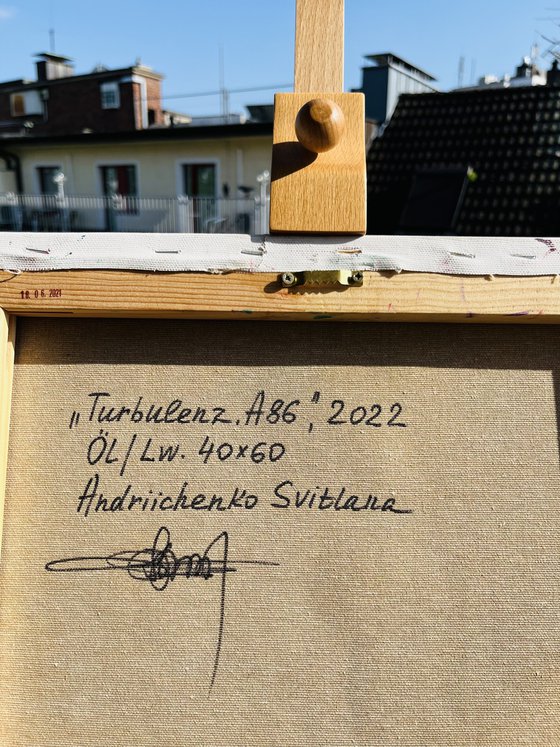 18.06.2021
„Turbulenz.A86", 2022
ÖL/Lw. 40×60
Andriichenko Svitlana